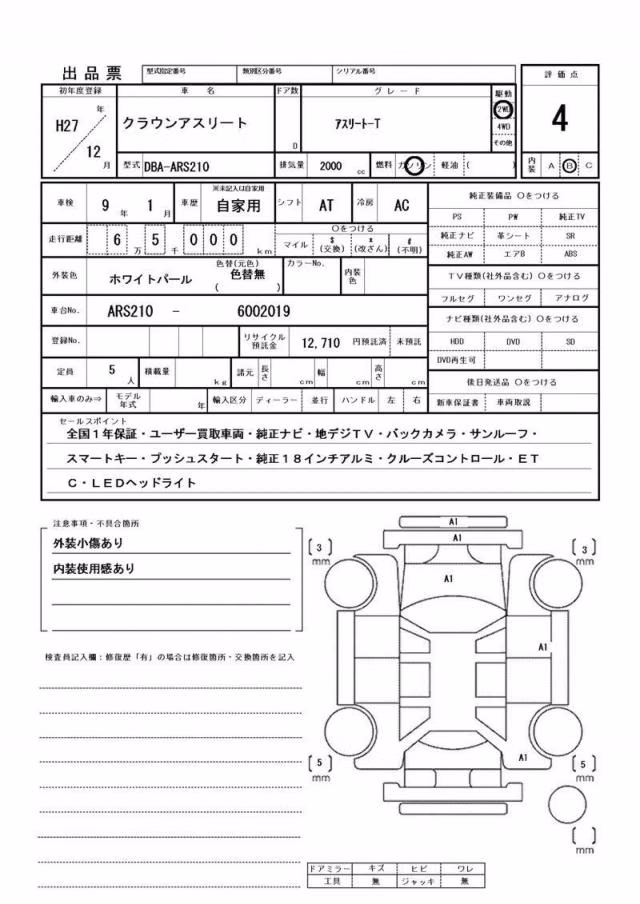 出品票 型式指定番号 類別区分番号 シリアル番号 評価点
初年度登録 車名 ドア数 グレード 駆動
H27 年 クラウンアスリート アスリートーT 2WD 4
12 月 D 4WD
その他
型式 DBA-ARS210 排気量 2000 cc 燃料 ガソリン 軽油 ( ) 内装 A B C
車検 9 年 1 月 車歴 ※未記入は自家用 自家用 シフト AT 冷房 AC 純正装備品 ○をつける
PS PW 純正TV
走行距離 6 万 5 千 0 0 0 km ○をつける
マイル $ (交換) * (改ざん) # (不明) 純正ナビ 革シート SR
純正AW エアB ABS
外装色 ホワイトパール 色替(元色) 色替無 ( ) カラーNo. 内装色 TV種類(社外品含む) ○をつける
フルセグ ワンセグ アナログ
車台No. ARS210 - 6002019 ナビ種類(社外品含む) ○をつける
登録No. リサイクル預託金 12,710 円預託済 未預託 HDD DVD SD
DVD再生可
定員 5 人 積載量 kg 諸元 長さ cm 幅 cm 高さ cm 後日発送品 ○をつける
輸入車のみ⇒ モデル年式 年 輸入区分 ディーラー 並行 ハンドル 左 右 新車保証書 車両取説
セールスポイント
全国1年保証・ユーザー買取車両・純正ナビ・地デジTV・バックカメラ・サンルーフ・
スマートキー・プッシュスタート・純正18インチアルミ・クルーズコントロール・ET
C・LEDヘッドライト
注意事項・不具合箇所
外装小傷あり
内装使用感あり
検査員記入欄:修復歴「有」の場合は修復箇所・交換箇所を記入
A1
A1
[3] mm A1 [3] mm
A1
A1
[5] mm [5] mm
[ ] mm
ドアミラー キズ ヒビ ワレ
工具 無 ジャッキ 無